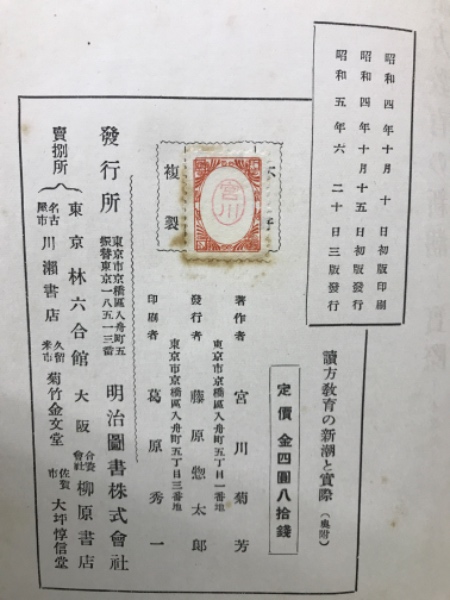 昭和四年十月 十日初版印刷
昭和四年十月十五日初版發行
昭和五年六 二十日三版發行
讀方教育の新潮と實際 (奥附)
定價 金四圓八拾錢
著作者 宮川菊芳
東京市京橋區入舟町五丁目一番地
發行者 藤原惣太郎
東京市京橋區入舟町五丁目三番地
印刷者 葛原秀一
複製
宮川
發行所
東京市京橋區入舟町五
振替東京一八五一三番
明治圖書株式會社
賣捌所
東京 林六合館
大阪 合資會社 柳原書店
名古屋市 川瀬書店
久留米市 菊竹金文堂
佐賀市 大坪惇信堂